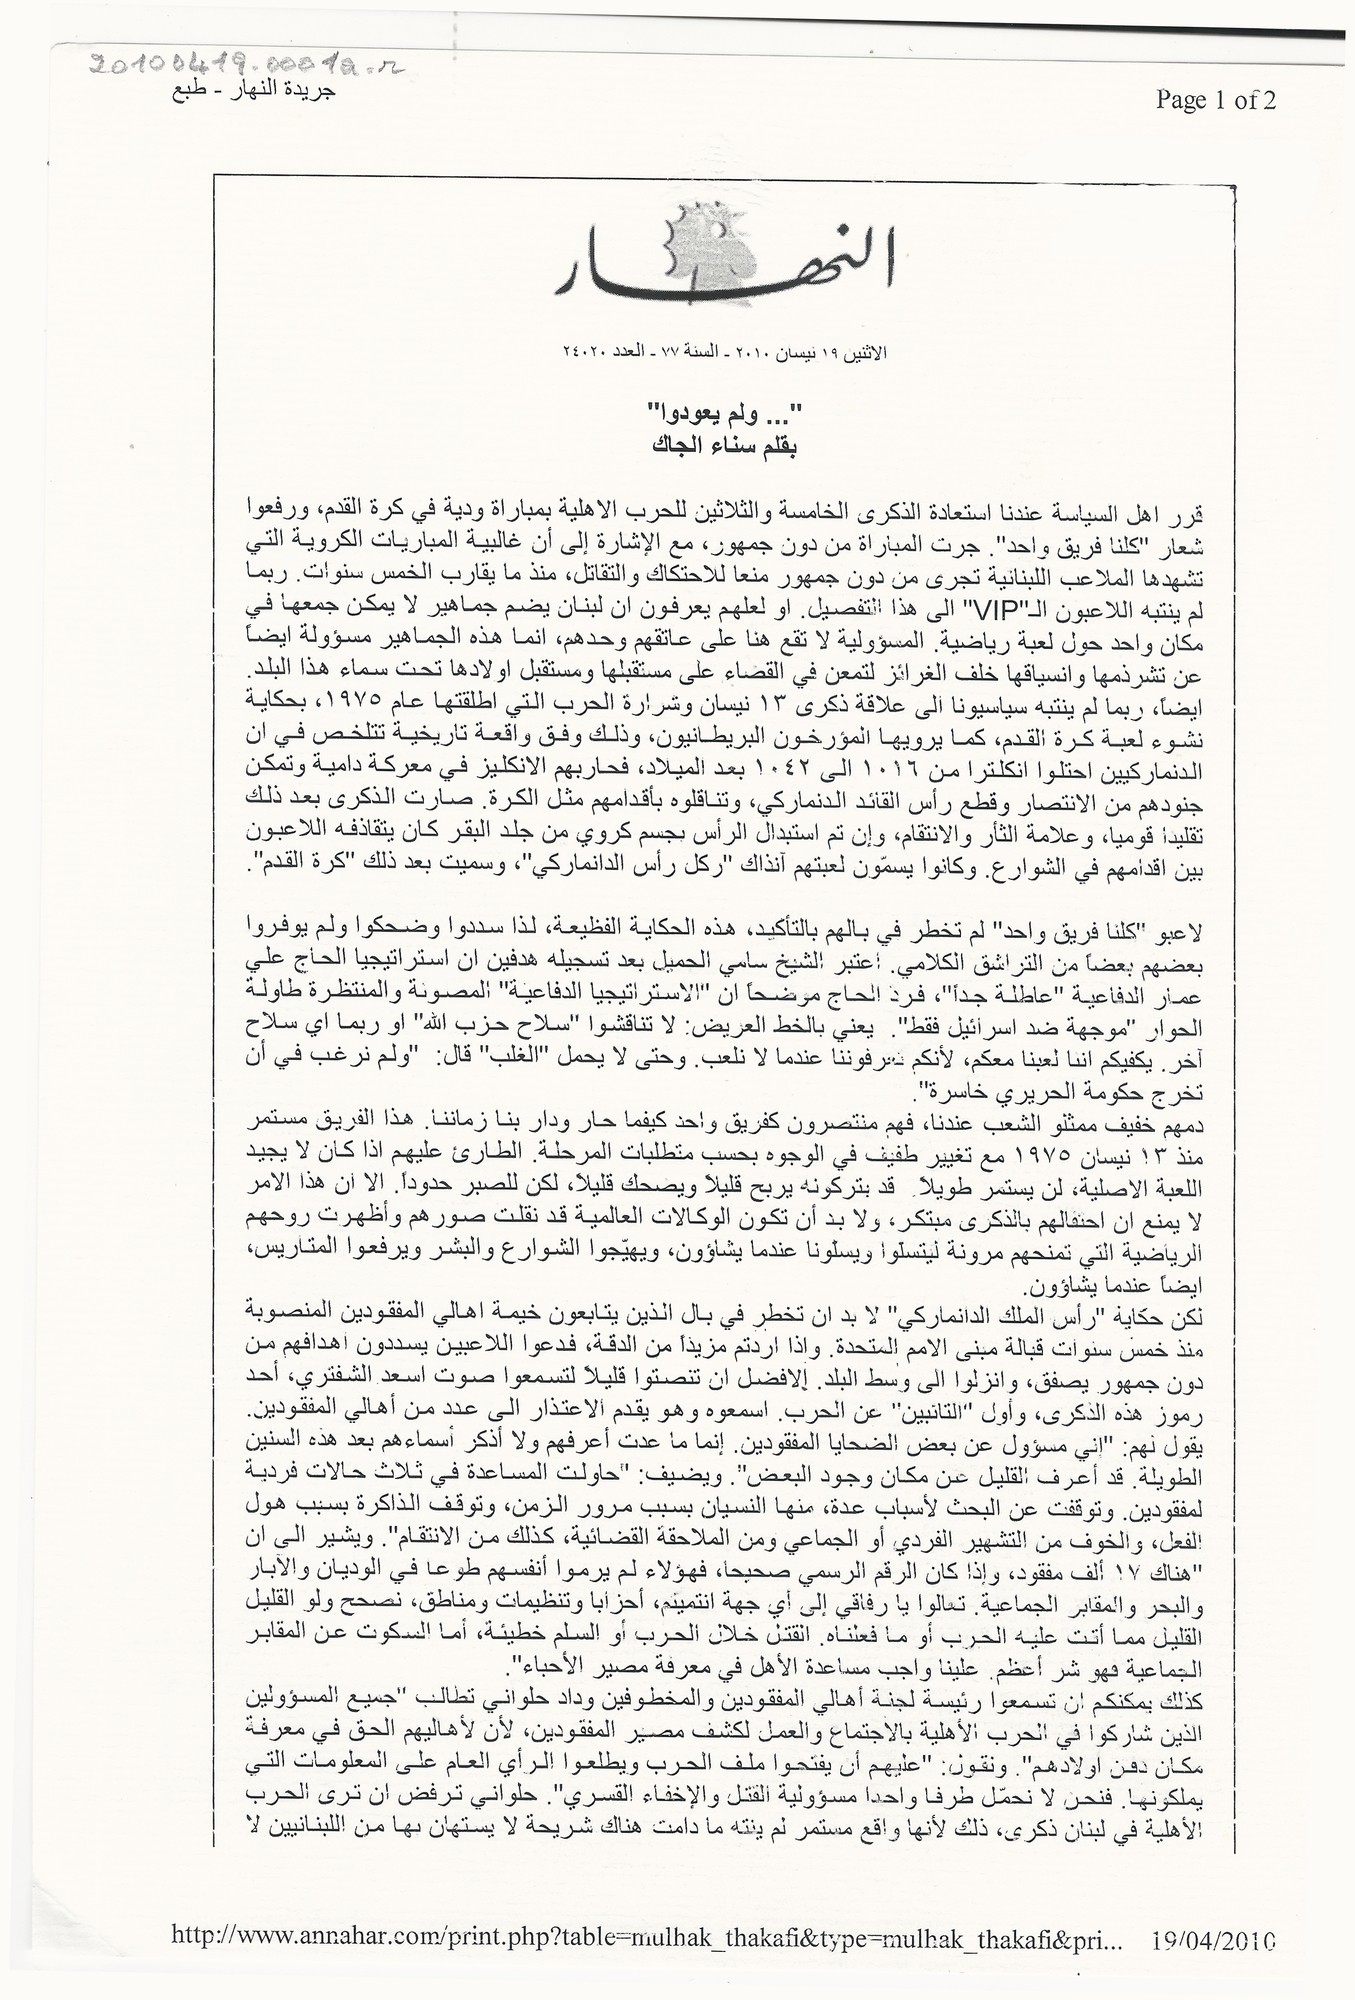 20100419.0001a.r
جريدة النهار - طبع
Page 1 of 2
النهار
الاثنين ١٩ نيسان ٢٠١٠ - السنة ٧٧ - العدد ٢٤٠٢٠
"... ولم يعودوا"
بقلم سناء الجاك
قرر اهل السياسة عندنا استعادة الذكرى الخامسة والثلاثين للحرب الاهلية بمباراة ودية في كرة القدم، ورفعوا
شعار "كلنا فريق واحد". جرت المباراة من دون جمهور، مع الإشارة إلى أن غالبية المباريات الكروية التي
تشهدها الملاعب اللبنانية تجرى من دون جمهور منعا للاحتكاك والتقاتل، منذ ما يقارب الخمس سنوات. ربما
لم ينتبه اللاعبون الـ"VIP" الى هذا التفصيل. او لعلهم يعرفون ان لبنان يضم جماهير لا يمكن جمعها في
مكان واحد حول لعبة رياضية. المسؤولية لا تقع هنا على عاتقهم وحدهم، انما هذه الجماهير مسؤولة ايضاً
عن تشرذمها وانسياقها خلف الغرائز لتمعن في القضاء على مستقبلها ومستقبل اولادها تحت سماء هذا البلد.
ايضاً، ربما لم ينتبه سياسيونا الى علاقة ذكرى ١٣ نيسان وشرارة الحرب التي اطلقتها عام ١٩٧٥، بحكاية
نشوء لعبة كرة القدم، كما يرويها المؤرخون البريطانيون، وذلك وفق واقعة تاريخية تتلخص في ان
الدنماركيين احتلوا انكلترا من ١٠١٦ الى ١٠٤٢ بعد الميلاد، فحاربهم الانكليز في معركة دامية وتمكن
جنودهم من الانتصار وقطع رأس القائد الدنماركي، وتناقلوه بأقدامهم مثل الكرة. صارت الذكرى بعد ذلك
تقليدا قوميا، وعلامة الثأر والانتقام، وإن تم استبدال الرأس بجسم كروي من جلد البقر كان يتقاذفه اللاعبون
بين اقدامهم في الشوارع. وكانوا يسمّون لعبتهم آنذاك "ركل رأس الدانماركي"، وسميت بعد ذلك "كرة القدم".
لاعبو "كلنا فريق واحد" لم تخطر في بالهم بالتأكيد، هذه الحكاية الفظيعة، لذا سددوا وضحكوا ولم يوفروا
بعضهم بعضاً من التراشق الكلامي. اعتبر الشيخ سامي الجميل بعد تسجيله هدفين ان استراتيجيا الحاج علي
عمار الدفاعية "عاطلة جداً"، فرد الحاج موضحاً ان "الاستراتيجيا الدفاعية" المصونة والمنتظرة طاولة
الحوار "موجهة ضد اسرائيل فقط". يعني بالخط العريض: لا تناقشوا "سلاح حزب الله" او ربما اي سلاح
آخر. يكفيكم اننا لعبنا معكم، لأنكم تعرفوننا عندما لا نلعب. وحتى لا يحمل "الغلب" قال: "ولم نرغب في أن
تخرج حكومة الحريري خاسرة".
دمهم خفيف ممثلو الشعب عندنا، فهم منتصرون كفريق واحد كيفما حار ودار بنا زماننا. هذا الفريق مستمر
منذ ١٣ نيسان ١٩٧٥ مع تغيير طفيف في الوجوه بحسب متطلبات المرحلة. الطارئ عليهم اذا كان لا يجيد
اللعبة الاصلية، لن يستمر طويلاً. قد يتركونه يربح قليلاً ويضحك قليلاً، لكن للصبر حدوداً. الا ان هذا الامر
لا يمنع ان احتفالهم بالذكرى مبتكر، ولا بد أن تكون الوكالات العالمية قد نقلت صورهم وأظهرت روحهم
الرياضية التي تمنحهم مرونة ليتسلوا ويسلونا عندما يشاؤون، ويهيّجوا الشوارع والبشر ويرفعوا المتاريس،
ايضاً عندما يشاؤون.
لكن حكاية "رأس الملك الدانماركي" لا بد ان تخطر في بال الذين يتابعون خيمة اهالي المفقودين المنصوبة
منذ خمس سنوات قبالة مبنى الامم المتحدة. وإذا اردتم مزيداً من الدقة، فدعوا اللاعبين يسددون أهدافهم من
دون جمهور يصفق، وانزلوا الى وسط البلد. الافضل ان تنصتوا قليلاً لتسمعوا صوت اسعد الشفتري، أحد
رموز هذه الذكرى، وأول "التائبين" عن الحرب. اسمعوه وهو يقدم الاعتذار الى عدد من أهالي المفقودين.
يقول لهم: "إني مسؤول عن بعض الضحايا المفقودين. إنما ما عدت أعرفهم ولا أذكر أسماءهم بعد هذه السنين
الطويلة. قد أعرف القليل عن مكان وجود البعض". ويضيف: "حاولت المساعدة في ثلاث حالات فردية
لمفقودين. وتوقفت عن البحث لأسباب عدة، منها النسيان بسبب مرور الزمن، وتوقف الذاكرة بسبب هول
الفعل، والخوف من التشهير الفردي أو الجماعي ومن الملاحقة القضائية، كذلك من الانتقام". ويشير الى ان
"هناك ١٧ ألف مفقود، وإذا كان الرقم الرسمي صحيحا، فهؤلاء لم يرموا أنفسهم طوعا في الوديان والآبار
والبحر والمقابر الجماعية. تعالوا يا رفاقي إلى أي جهة انتميتم، أحزابا وتنظيمات ومناطق، نصحح ولو القليل
القليل مما أتت عليه الحرب أو ما فعلناه. القتل خلال الحرب أو السلم خطيئة، أما السكوت عن المقابر
الجماعية فهو شر أعظم. علينا واجب مساعدة الأهل في معرفة مصير الأحباء".
كذلك يمكنكم ان تسمعوا رئيسة لجنة أهالي المفقودين والمخطوفين وداد حلواني تطالب "جميع المسؤولين
الذين شاركوا في الحرب الأهلية بالاجتماع والعمل لكشف مصير المفقودين، لأن لأهاليهم الحق في معرفة
مكان دفن اولادهم". وتقول: "عليهم أن يفتحوا ملف الحرب ويطلعوا الرأي العام على المعلومات التي
يملكونها. فنحن لا نحمّل طرفا واحدا مسؤولية القتل والإخفاء القسري". حلواني ترفض ان ترى الحرب
الأهلية في لبنان ذكرى، ذلك لأنها واقع مستمر لم ينته ما دامت هناك شريحة لا يستهان بها من اللبنانيين لا
http://www.annahar.com/print.php?table=mulhak_thakafi&type=mulhak_thakafi&pri...
19/04/2010